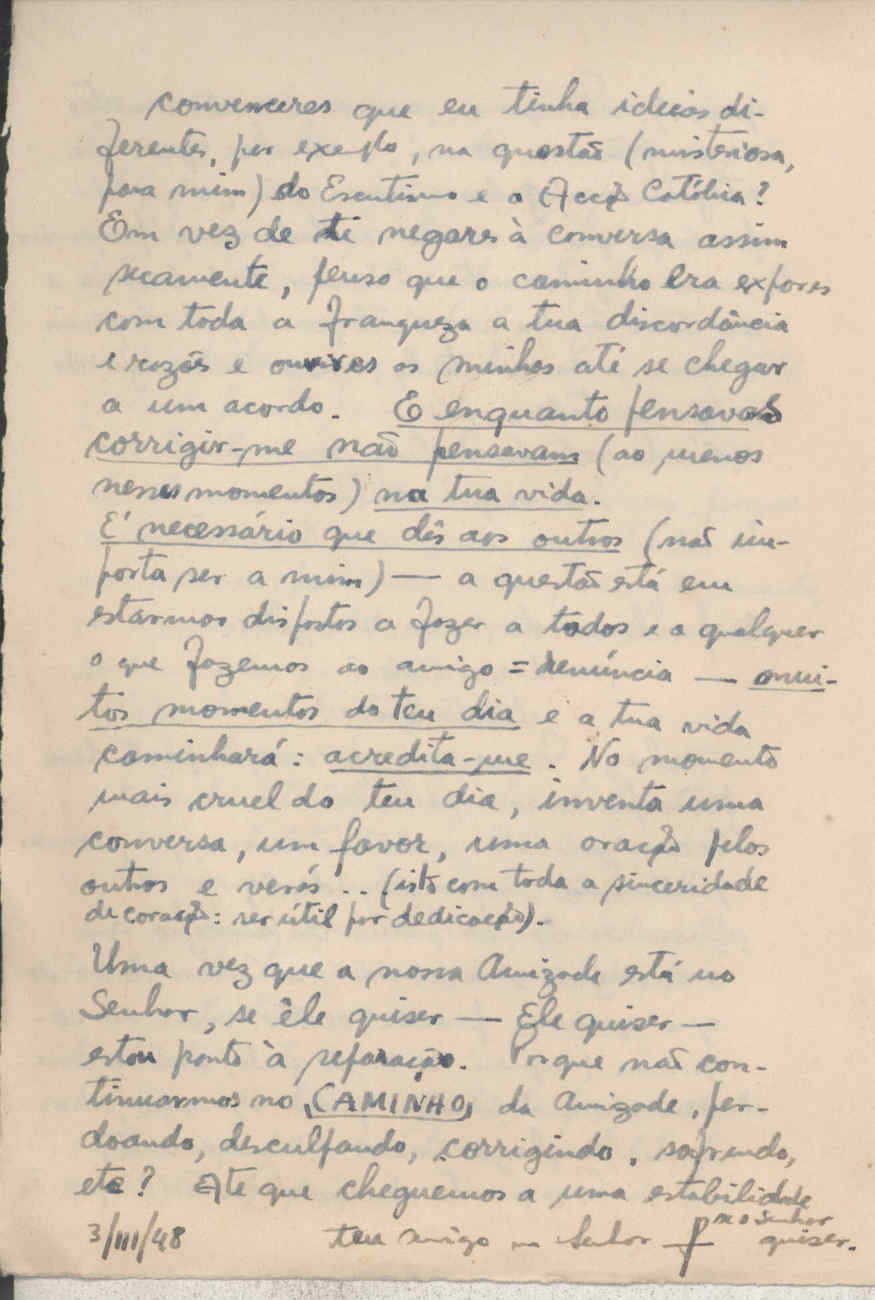 convenceres que eu tinha ideias di-
ferentes, por exemplo, na questão (misteriosa,
para mim) do Escutismo e a Acção Católica?
Em vez de te negares à conversa assim
secamente, penso que o caminho era expores
com toda a franqueza a tua discordância
e razões e ouvires as minhas até se chegar
a um acordo. E enquanto pensavas
corrigir-me não pensavas (ao menos
nesses momentos) na tua vida.
É necessário que dês aos outros (não im-
porta ser a mim) — a questão está em
estarmos dispostos a fazer a todos e a qualquer
o que fazemos ao amigo = renúncia — mui-
tos momentos do teu dia e a tua vida
caminhará: acredita-me. No momento
mais cruel do teu dia, inventa uma
conversa, um favor, uma oração pelos
outros e verás .. (isto com toda a sinceridade
de coração: ser útil por dedicação).
Uma vez que a nossa Amizade está no
Senhor, se êle quiser — Ele quiser —
estou pronto à reparação. Porque não con-
tinuarmos no CAMINHO da Amizade, per-
doando, desculpando, corrigindo, sofrendo,
etc? Até que cheguemos a uma estabilidade
se o Senhor
quiser.
3/III/48 teu amigo no Senhor